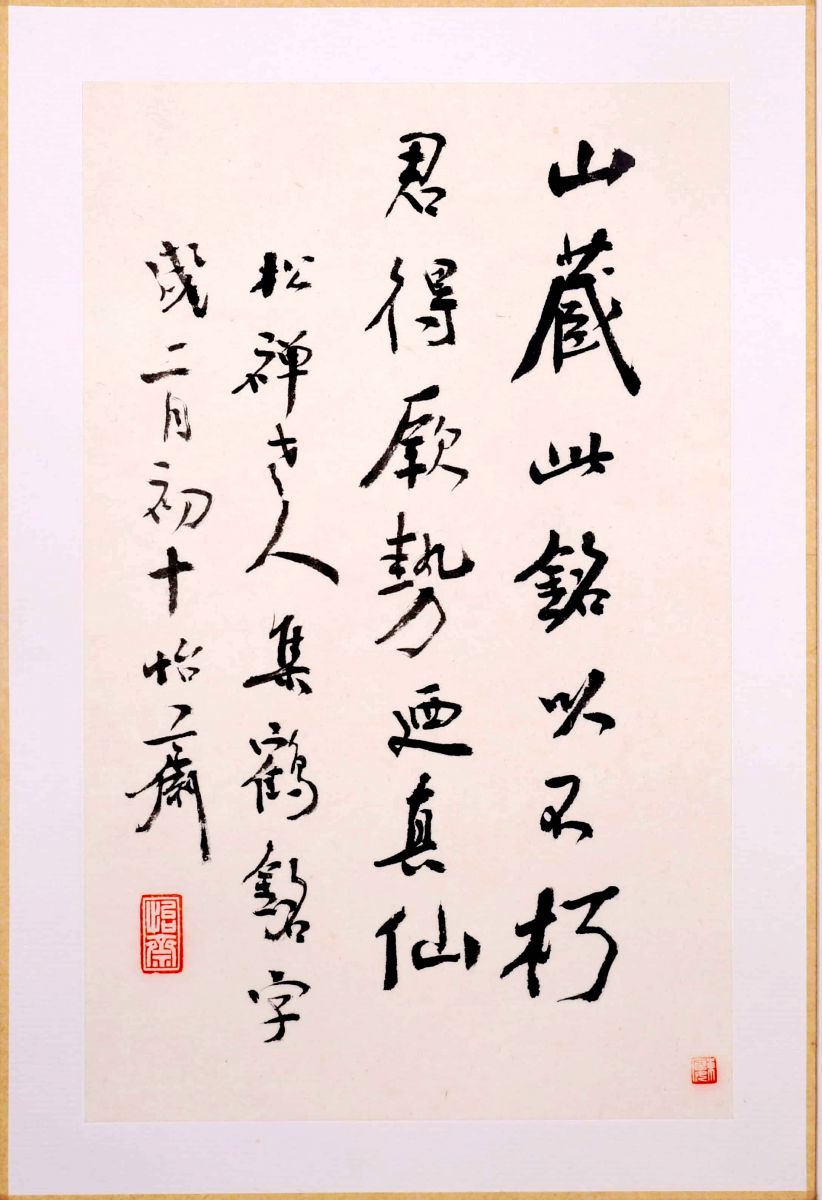 山藏此銘以不朽
君得厥勢迺真仙
松禪老人集鶴銘字
歲二月初十怡齋
怡齋